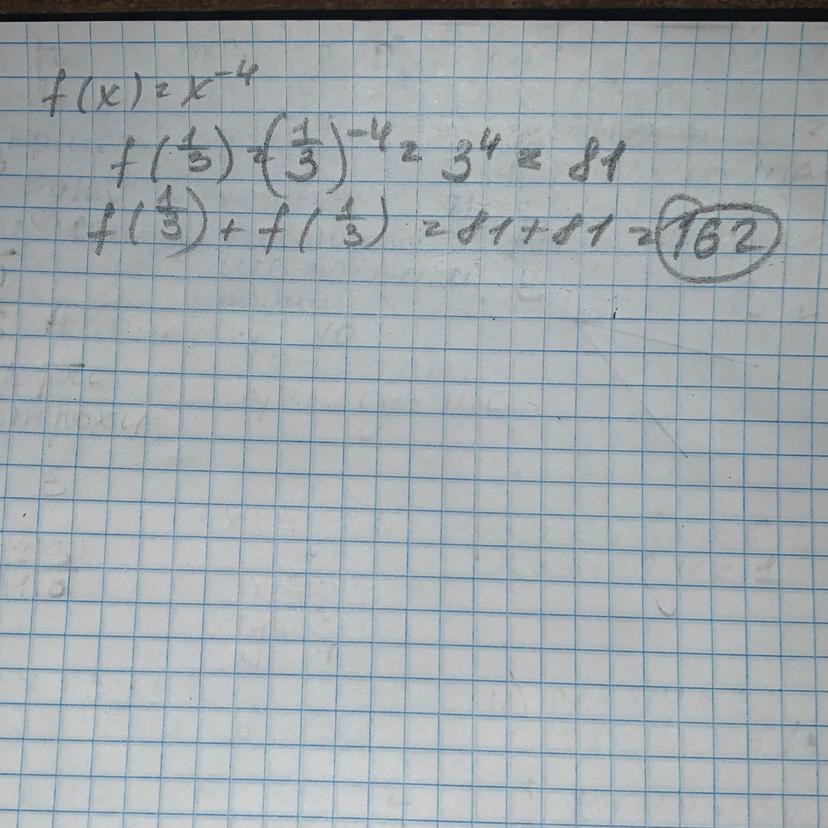 f(x) = x⁻⁴
f(1/3) = (1/3)⁻⁴ = 3⁴ = 81
f(1/3) + f(1/3) = 81 + 81 = 162